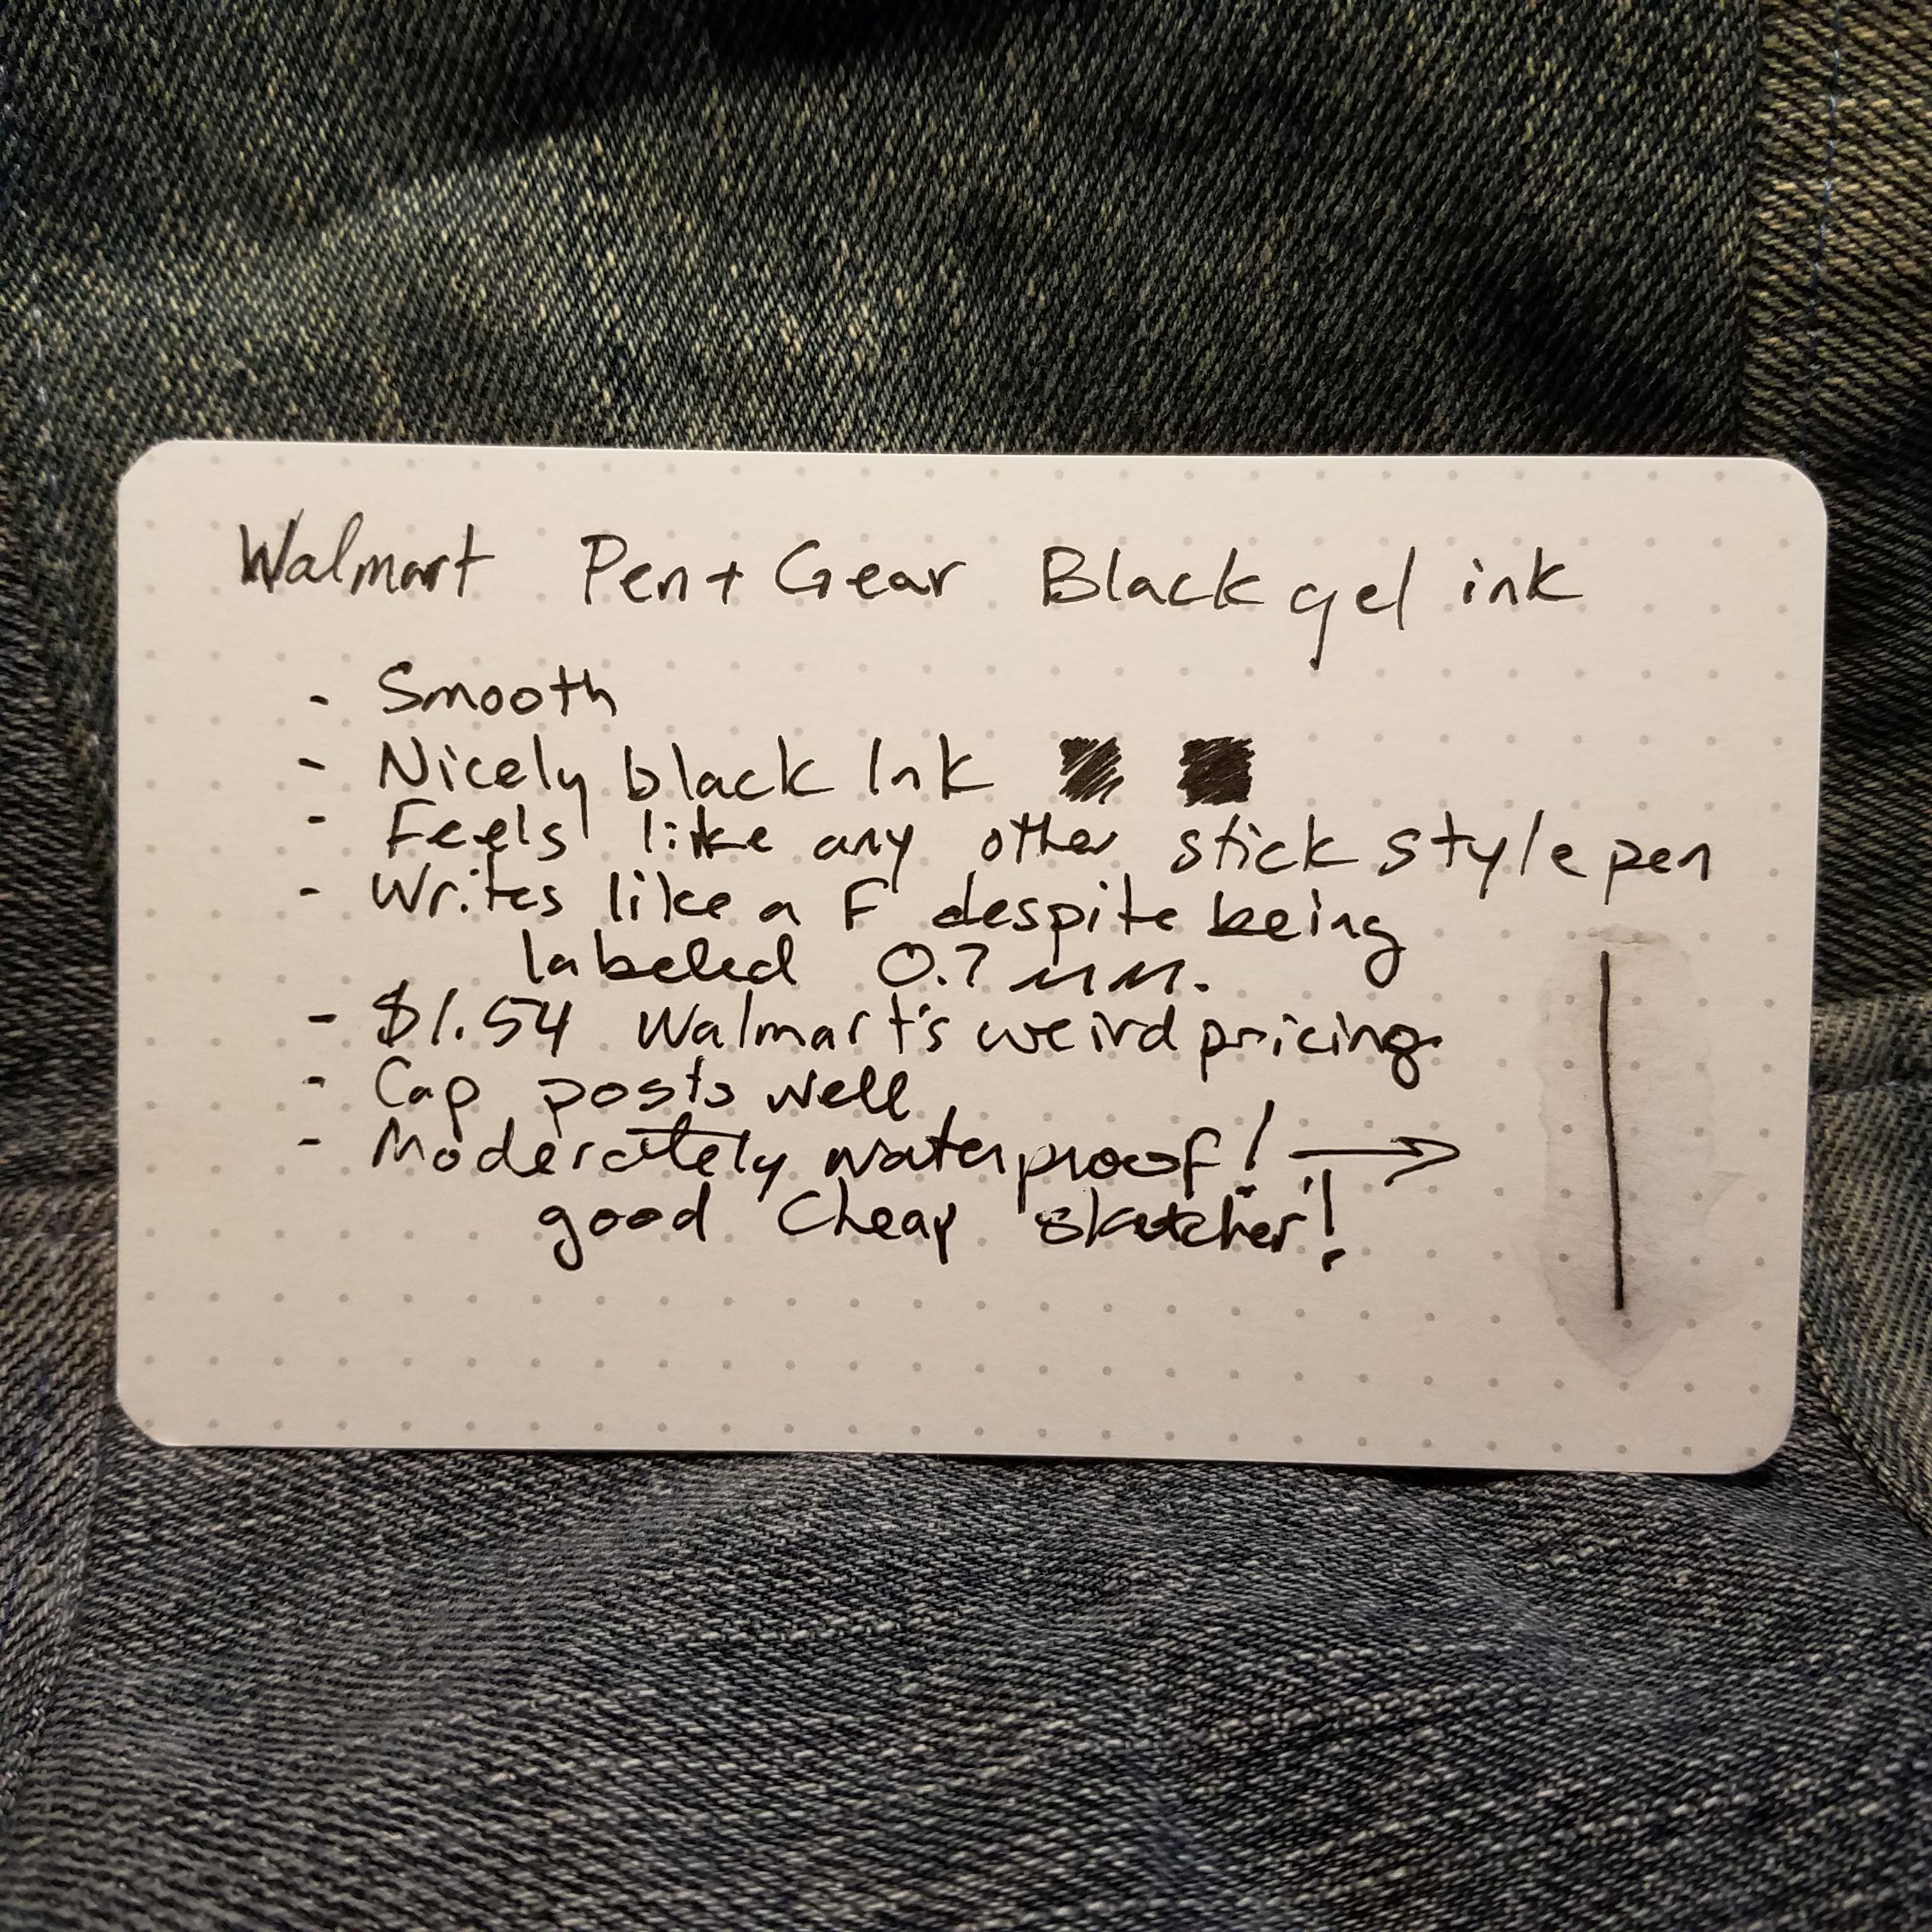 Walmart Pen + Gear Black gel ink
- Smooth
- Nicely black Ink
- Feels like any other stick style pen
- Writes like a F despite being
labeled 0.7 mm.
- $1.54 Walmart's weird pricing.
- Cap posts well
- Moderately waterproof! →
good cheap "sketcher"!